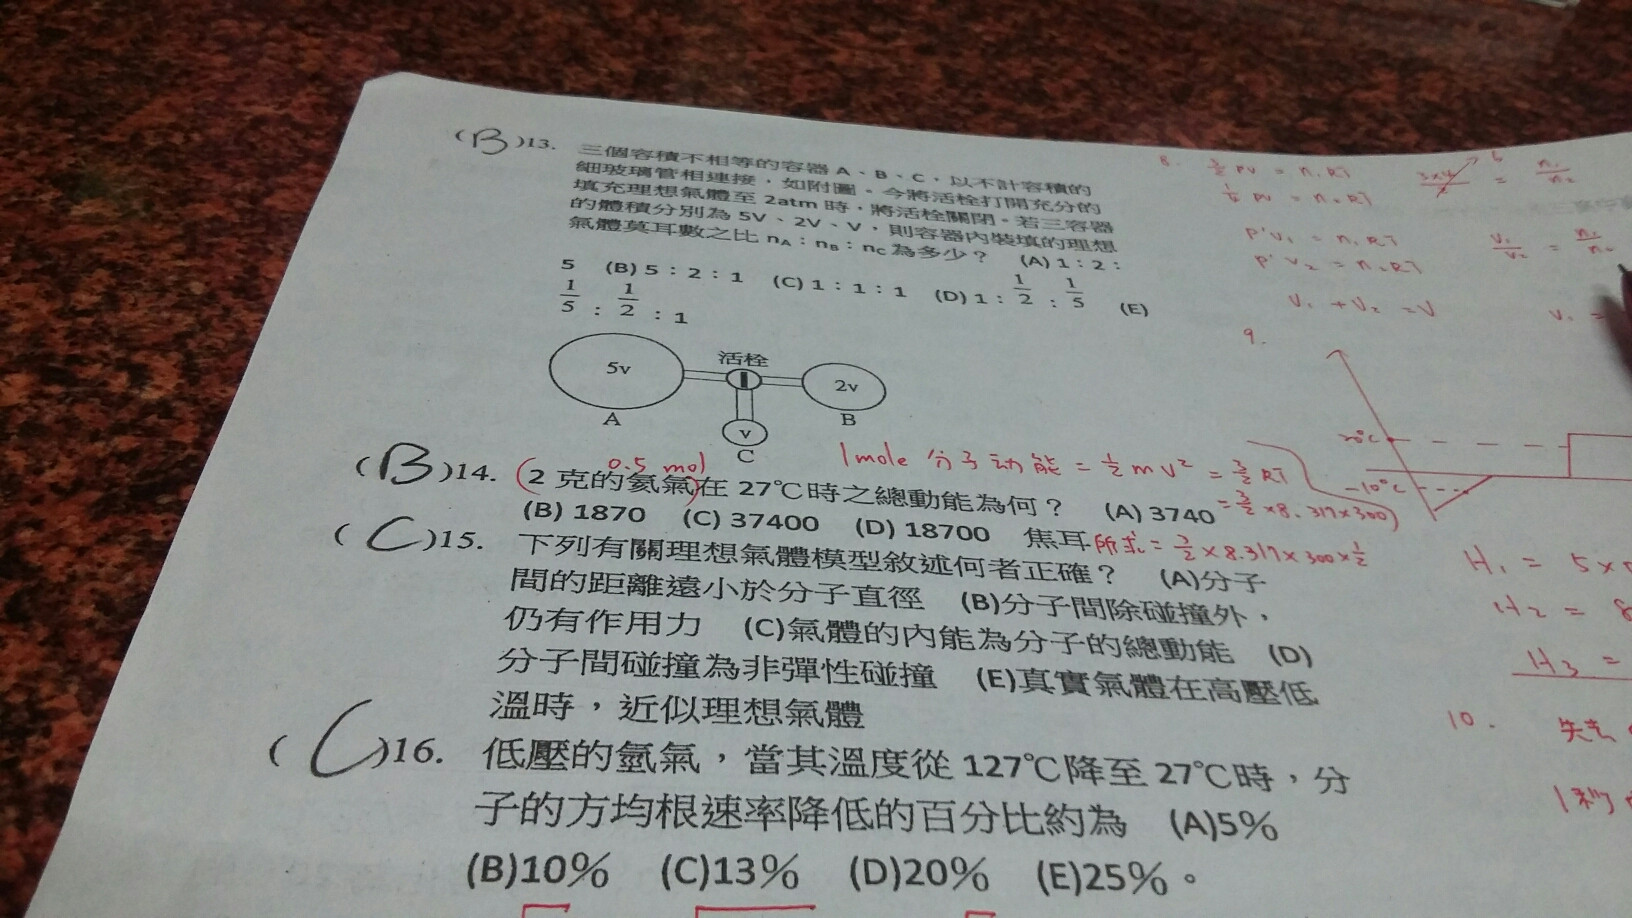 (B)13. 三個容積不相等的容器 A、B、C，以不計容積的
細玻璃管相連接，如附圖。今將活栓打開充分的
填充理想氣體至 2atm 時，將活栓關閉。若三容器
的體積分別為 5V、2V、V，則容器內裝填的理想
氣體莫耳數之比 nA：nB：nC 為多少？ (A) 1：2：
5 (B) 5：2：1 (C) 1：1：1 (D) 1：1/2：1/5 (E)
1/5：1/2：1
5v
活栓
2v
A
B
v
C
0.5 mol
1 mole 分子动能 = ½mv² = 3/2 RT
(B)14. (2 克的氦氣)在 27℃時之總動能為何？ (A) 3740
= 3/2 × 8.317×300)
(B) 1870 (C) 37400 (D) 18700 焦耳
所求 = 3/2 × 8.317 × 300 × 1/2
(C)15. 下列有關理想氣體模型敘述何者正確？ (A)分子
間的距離遠小於分子直徑 (B)分子間除碰撞外，
仍有作用力 (C)氣體的內能為分子的總動能 (D)
分子間碰撞為非彈性碰撞 (E)真實氣體在高壓低
溫時，近似理想氣體
(C)16. 低壓的氬氣，當其溫度從 127℃降至 27℃時，分
子的方均根速率降低的百分比約為 (A)5%
(B)10% (C)13% (D)20% (E)25%。
8.
P'V₁ = n₁RT
P'V₂ = n₂RT
V₁ + V₂ = V
9.
-10℃
H₁ = 5×
H₂ = 8
H₃ =
10.